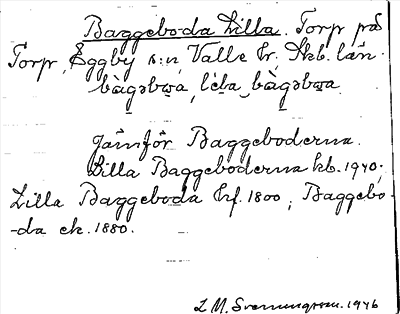 Baggeboda Lilla. Torp på
Torp, Eggby s:n, Valle hr, Skb. län.
bàgəbɯa, lìla bàgəbɯa
Jämför Baggeboderna.
Lilla Baggeboderna kb. 1940.
Lilla Baggeboda hf. 1800; Baggebo-
-da ek. 1880.
L M. Svenungsson. 1946